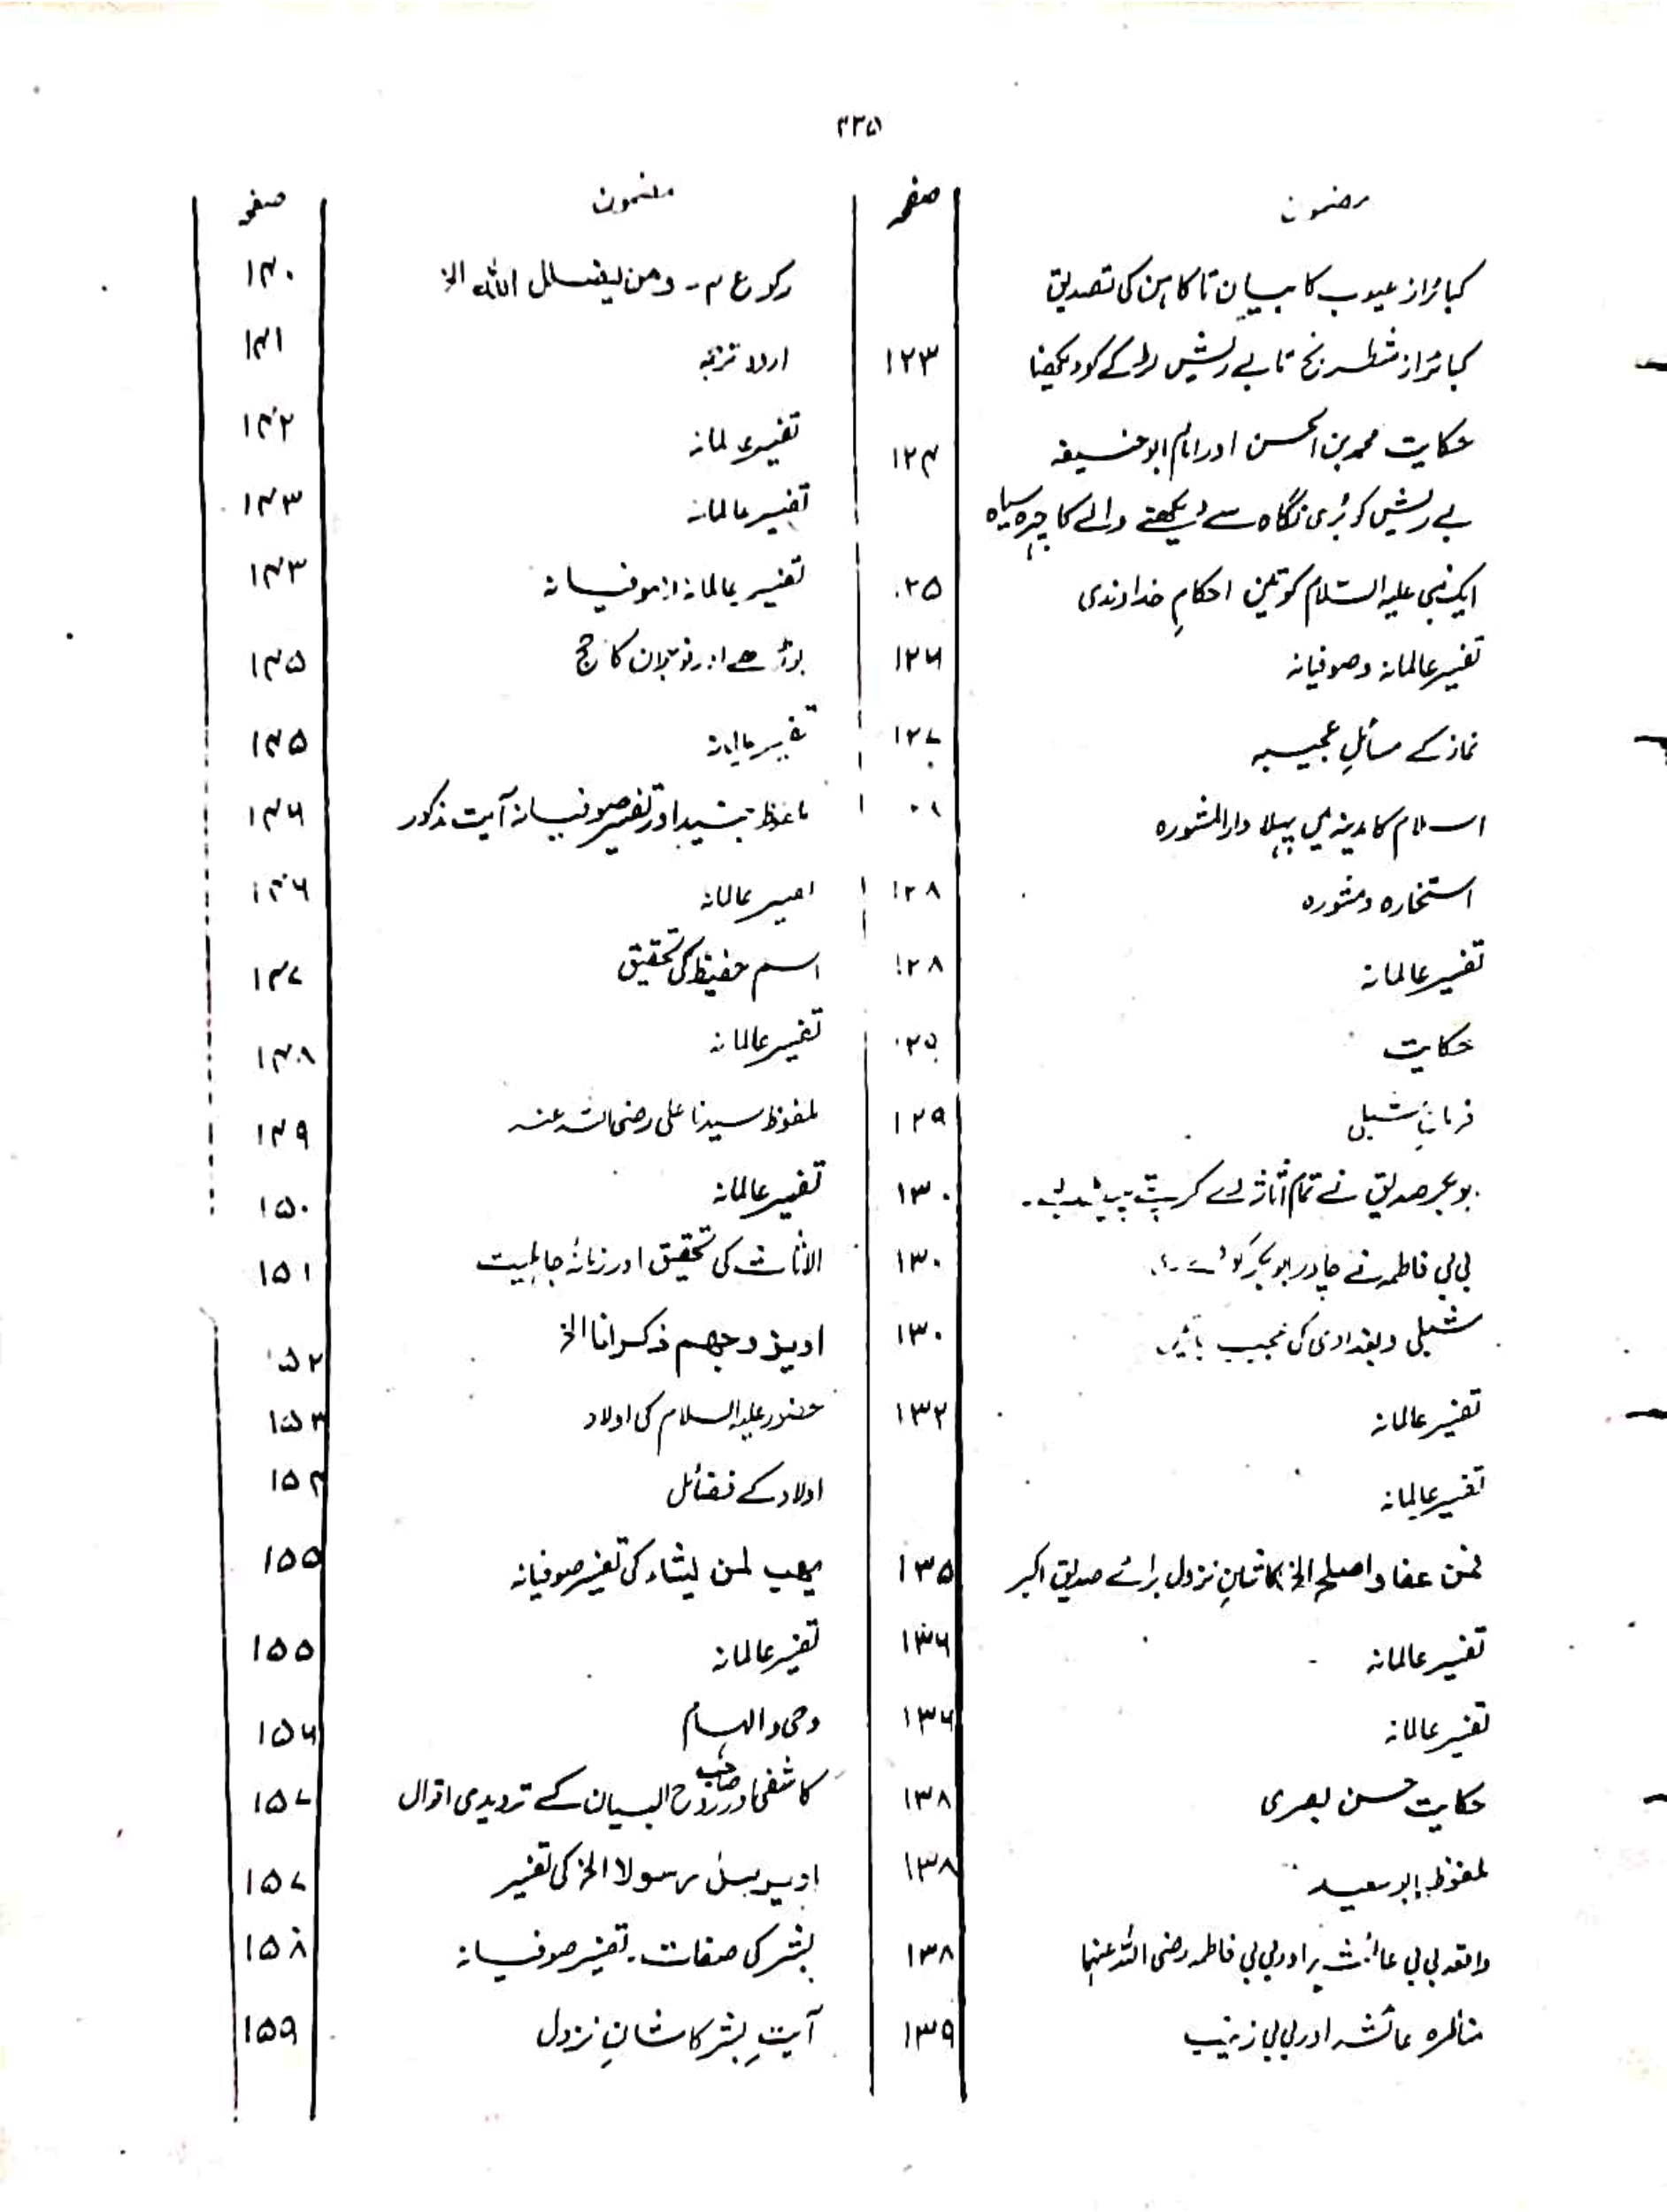 ۳۳۵
مضمون صفحہ
کبائر از عیوب کا بیان تا کاہن کی تصدیق
کبائر از شطرنج تا بے ریش لڑکے کو دیکھنا ۱۲۳
حکایت محمد بن الحسن اور امام ابو حنیفہ ۱۲۴
بے ریش کو بُری نگاہ سے دیکھنے والے کا چہرہ سیاہ
ایک نبی علیہ السلام کو تلقین احکامِ خداوندی ۲۵
تفسیر عالمانہ و صوفیانہ ۱۲۶
نماز کے مسائلِ عجیبہ ۱۲۷
اسلام کا مدینہ میں پہلا دارالمشورہ
استخارہ و مشورہ ۱۲۸
تفسیر عالمانہ ۱۲۸
حکایت
فرمانِ شبلی ۱۲۹
بوبکر صدیق نے تمام اثاثہ دے کر ۱۳۰
بی بی فاطمہ نے چادر ابوبکر کو ۱۳۰
شبلی و بغدادی کی عجیب باتیں ۱۳۰
تفسیر عالمانہ ۱۳۲
تفسیر عالمانہ
فمن عفا واصلح الخ کا شانِ نزول برائے صدیق اکبر ۱۳۵
تفسیر عالمانہ ۱۳۶
تفسیر عالمانہ ۱۳۶
حکایت حسن بصری ۱۳۸
ملفوظ ابو سعید ۱۳۸
واقعہ بی بی عائشہ اور بی بی فاطمہ رضی اللہ عنہما ۱۳۸
مناظرہ عائشہ اور بی بی زینب ۱۳۹
مضمون صفحہ
رکوع ۴ ـ ومن یضلل اللہ الخ ۱۴۰
اردو ترجمہ ۱۴۱
تفسیر عالمانہ ۱۴۲
تفسیر عالمانہ ۱۴۳
تفسیر عالمانہ از صوفیانہ ۱۴۳
بوڑھے اور نوجوان کا حج ۱۴۵
تفسیر عالمانہ ۱۴۵
اور تفسیر صوفیانہ آیت مذکور ۱۴۶
تفسیر عالمانہ ۱۴۶
اسم حفیظ کی تحقیق ۱۴۷
تفسیر عالمانہ ۱۴۸
ملفوظ سیدنا علی رضی اللہ عنہ ۱۴۹
تفسیر عالمانہ ۱۵۰
الاناث کی تحقیق اور زمانۂ جاہلیت ۱۵۱
او یزوجھم ذکرانا الخ ۱۵۲
حضور علیہ السلام کی اولاد ۱۵۳
اولاد کے فضائل ۱۵۴
یھب لمن یشاء کی تفسیر صوفیانہ ۱۵۵
تفسیر عالمانہ ۱۵۵
وحی و الہام ۱۵۶
کاشفی اور صاحب روح البیان کے تردیدی اقوال ۱۵۷
او یرسل رسولا الخ کی تفسیر ۱۵۷
بشر کی صفات ـ تفسیر صوفیانہ ۱۵۸
آیتِ بشر کا شانِ نزول ۱۵۹